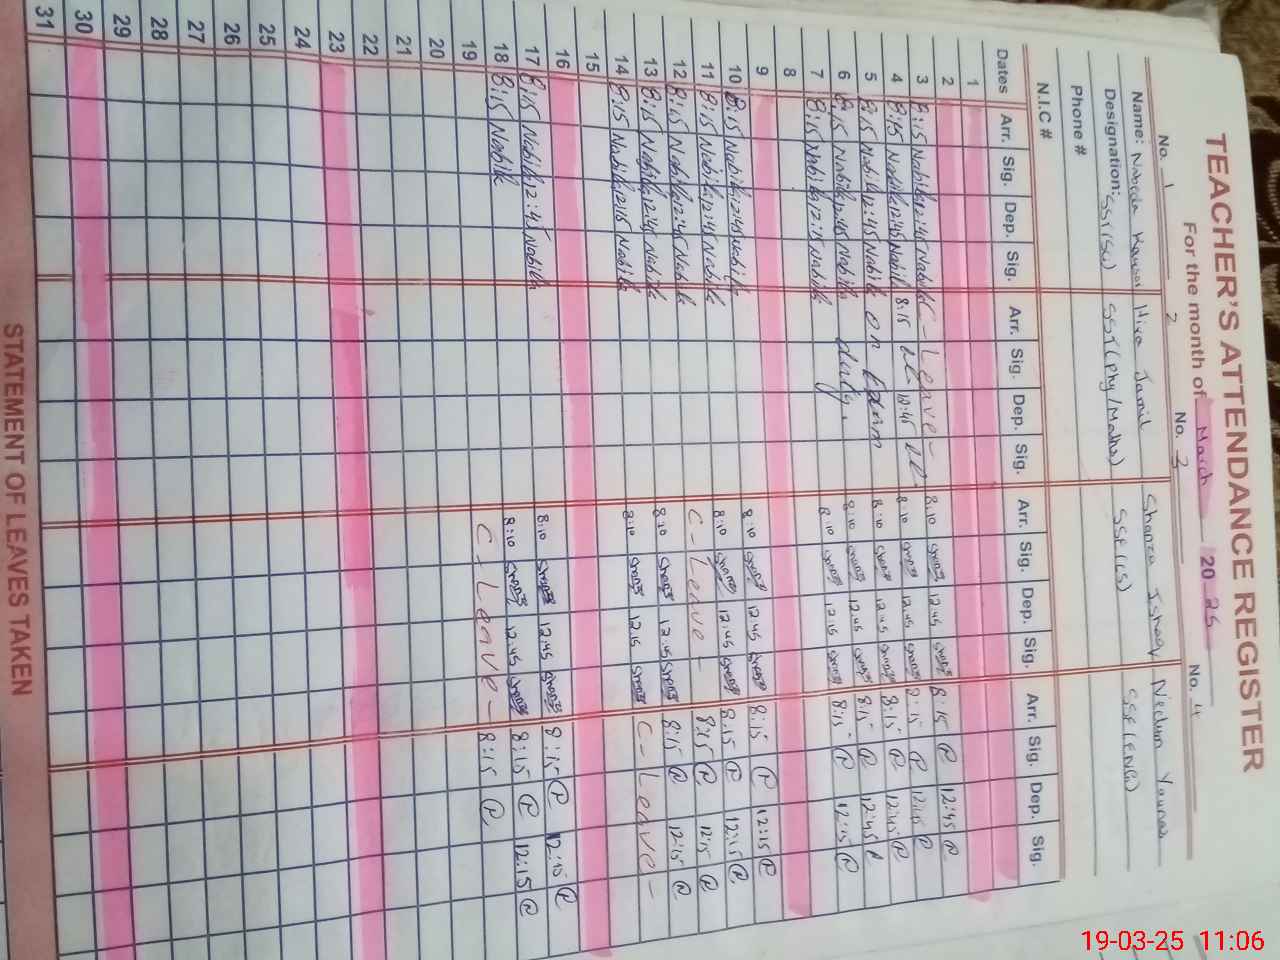 TEACHER'S ATTENDANCE REGISTER
For the month of March 2025
No. 1 2 No. 3 No. 4
Name: Hira Jamil Shanza Ishaq
Designation: SST(Sc) SST(Phy/Maths) SSE(CS) SSE(ENG)
Phone #
N.I.C #
Dates Arr. Sig. Dep. Sig. Arr. Sig. Dep. Sig. Arr. Sig. Dep. Sig. Arr. Sig. Dep. Sig.
1
2
3 8:15 Nabila 12:45 Nabila C-Leave- 8:10 Shanza 12.45 Shanza 8:15 12:45
4 8:15 Nabila 12:45 Nabila 8:15 12:45 8:10 Shanza 12.45 Shanza 8:15 12:45
5 8:15 Nabila 12:45 Nabila on Exam 8:10 Shanza 12.45 Shanza 8:15 12:45
6 8:15 Nabila 12:45 Nabila duty. 8:10 Shanza 12.45 Shanza 8:15 12:45
7 8:15 Nabila 12:15 Nabila 8:10 Shanza 12.15 Shanza 8:15 12:15
8
9
10 8:15 Nabila 12:45 Nabila 8:10 Shanza 12.45 Shanza 8:15 12:15
11 8:15 Nabila 12:45 Nabila 8:10 Shanza 12.45 Shanza 8:15 12:15
12 8:15 Nabila 12:45 Nabila C-Leave- 8:15 12:15
13 8:15 Nabila 12:45 Nabila 8:10 Shanza 12.45 Shanza 8:15 12:15
14 8:15 Nabila 12:15 Nabila 8:10 Shanza 12.15 Shanza C-Leave-
15
16
17 8:15 Nabila 12:45 Nabila 8:10 Shanza 12.45 Shanza 8:15 12:15
18 8:15 Nabila 8:10 Shanza 12.45 Shanza 8:15 12:15
19 C-Leave- 8:15
20
21
22
23
24
25
26
27
28
29
30
31
STATEMENT OF LEAVES TAKEN
19-03-25 11:06